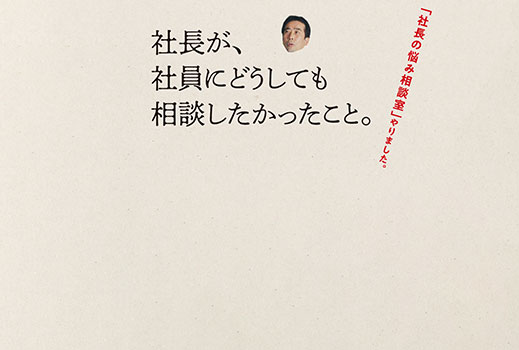 社長が、
社員にどうしても
相談したかったこと。
「社長の悩み相談室」やりました。